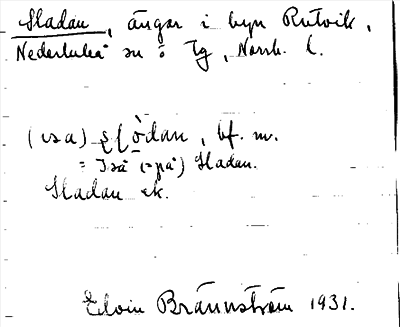 Sladan, ängar i byn Rutvik,
Nederluleå sn o Tg, Norrb. l.
(isa) , bf. m.
= Isä (= på) Sladan.
Sladan ek.
Edvin Brännström 1931.